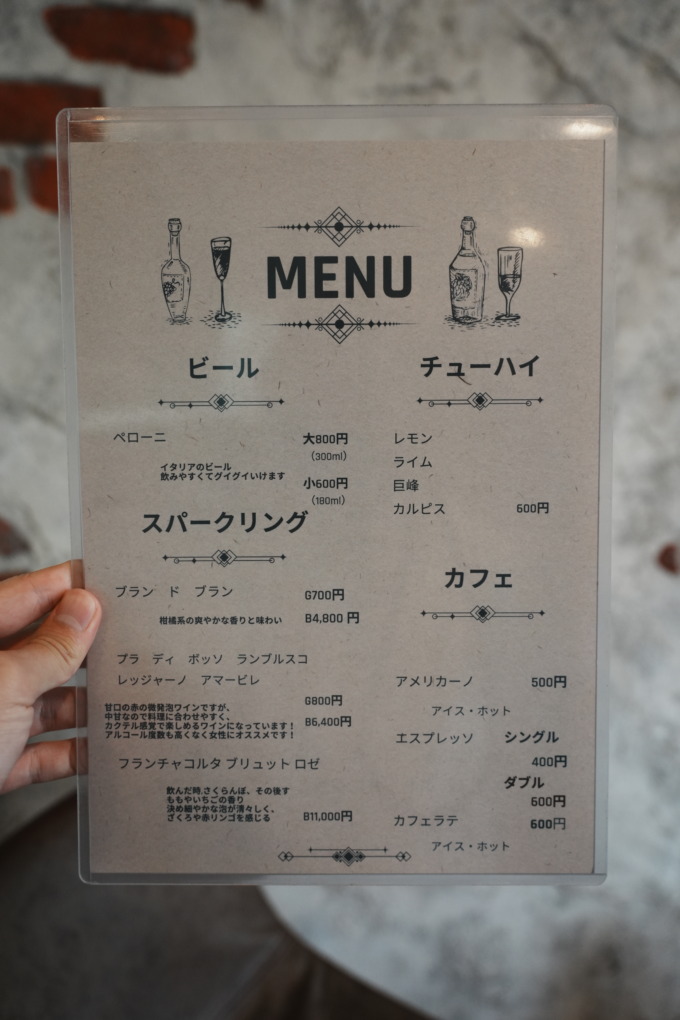 MENU
ビール
ペローニ 大800円
(300ml)
イタリアのビール
飲みやすくてグイグイいけます
小600円
(180ml)
スパークリング
ブラン ド ブラン G700円
柑橘系の爽やかな香りと味わい B4,800 円
プラ ディ ボッソ ランブルスコ
レッジャーノ アマービレ
G800円
甘口の赤の微発泡ワインですが、
中甘なので料理に合わせやすく、
カクテル感覚で楽しめるワインになっています!
アルコール度数も高くなく女性にオススメです!
B6,400円
フランチャコルタ ブリュット ロゼ
飲んだ時,さくらんぼ、その後す
ももやいちごの香り
決め細やかな泡が清々しく、
ざくろや赤リンゴを感じる
B11,000円
チューハイ
レモン
ライム
巨峰
カルピス 600円
カフェ
アメリカーノ 500円
アイス・ホット
エスプレッソ シングル
400円
ダブル
600円
カフェラテ 600円
アイス・ホット